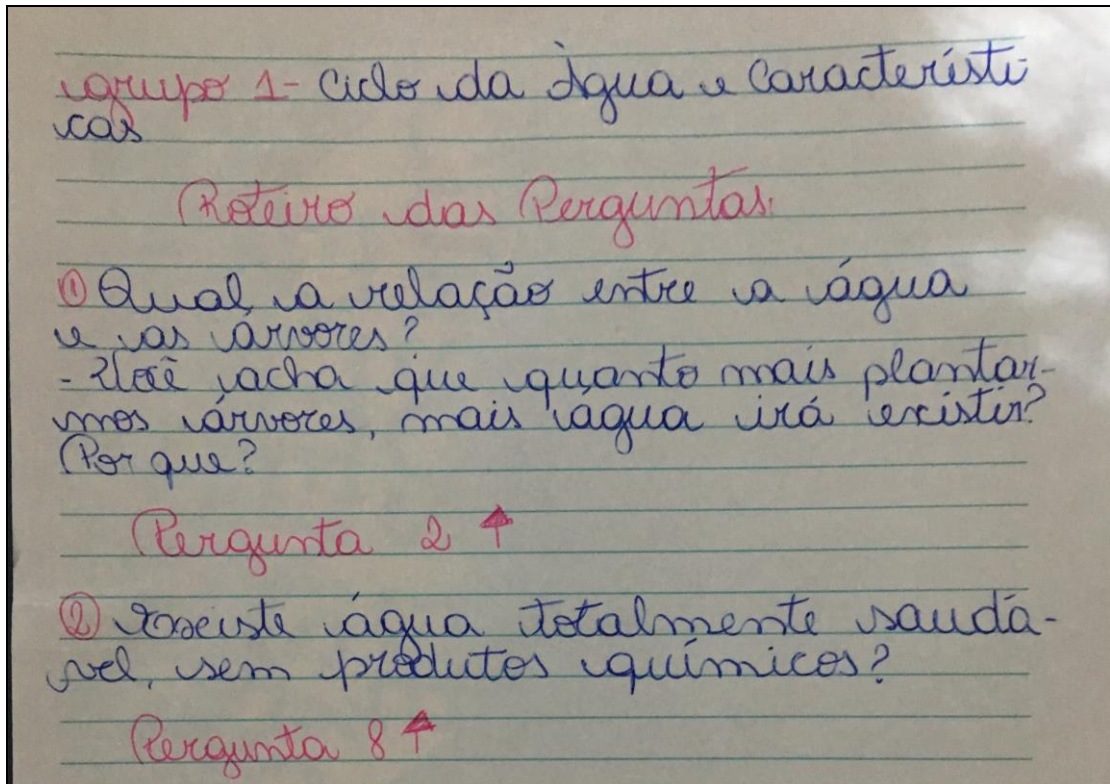 grupo 1- Ciclo da Àgua e Característi-
cas
Roteiro das Perguntas:
① Qual, a relação entre a água
e as árvores?
- Você acha que quanto mais plantar-
mos árvores, mais água irá existir?
Por que?
Pergunta 2 ↑
② Existe água totalmente saudá-
vel, sem produtos químicos?
Pergunta 8 ↑